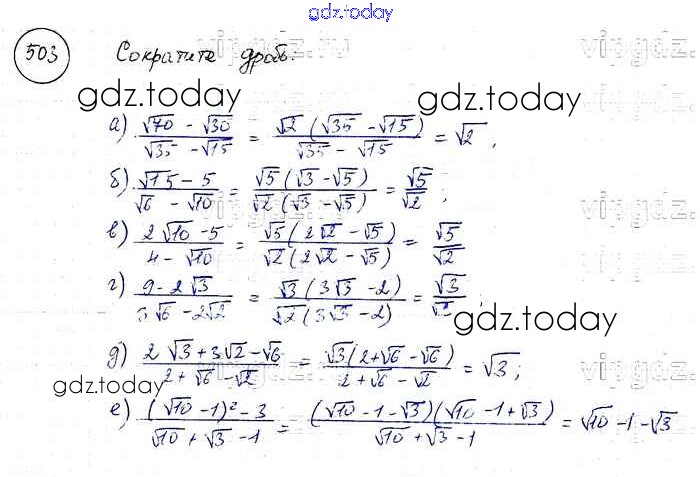 gdz.today
503 Сократите дробь.
а) (√70 - √30)/(√35 - √15) = √2(√35 - √15)/(√35 - √15) = √2,
б) (√15 - 5)/(√6 - √10) = √5(√3 - √5)/(√2(√3 - √5)) = √5/√2;
в) (2√10 - 5)/(4 - √10) = √5(2√2 - √5)/(√2(2√2 - √5)) = √5/√2
г) (9 - 2√3)/(3√6 - 2√2) = √3(3√3 - 2)/(√2(3√3 - 2)) = √3/√2;
д) (2√3 + 3√2 - √6)/(2 + √6 - √2) = √3(2 + √6 - √6)/(2 + √6 - √2) = √3;
е) ((√10 - 1)² - 3)/(√10 + √3 - 1) = (√10 - 1 - √3)(√10 - 1 + √3)/(√10 + √3 - 1) = √10 - 1 - √3